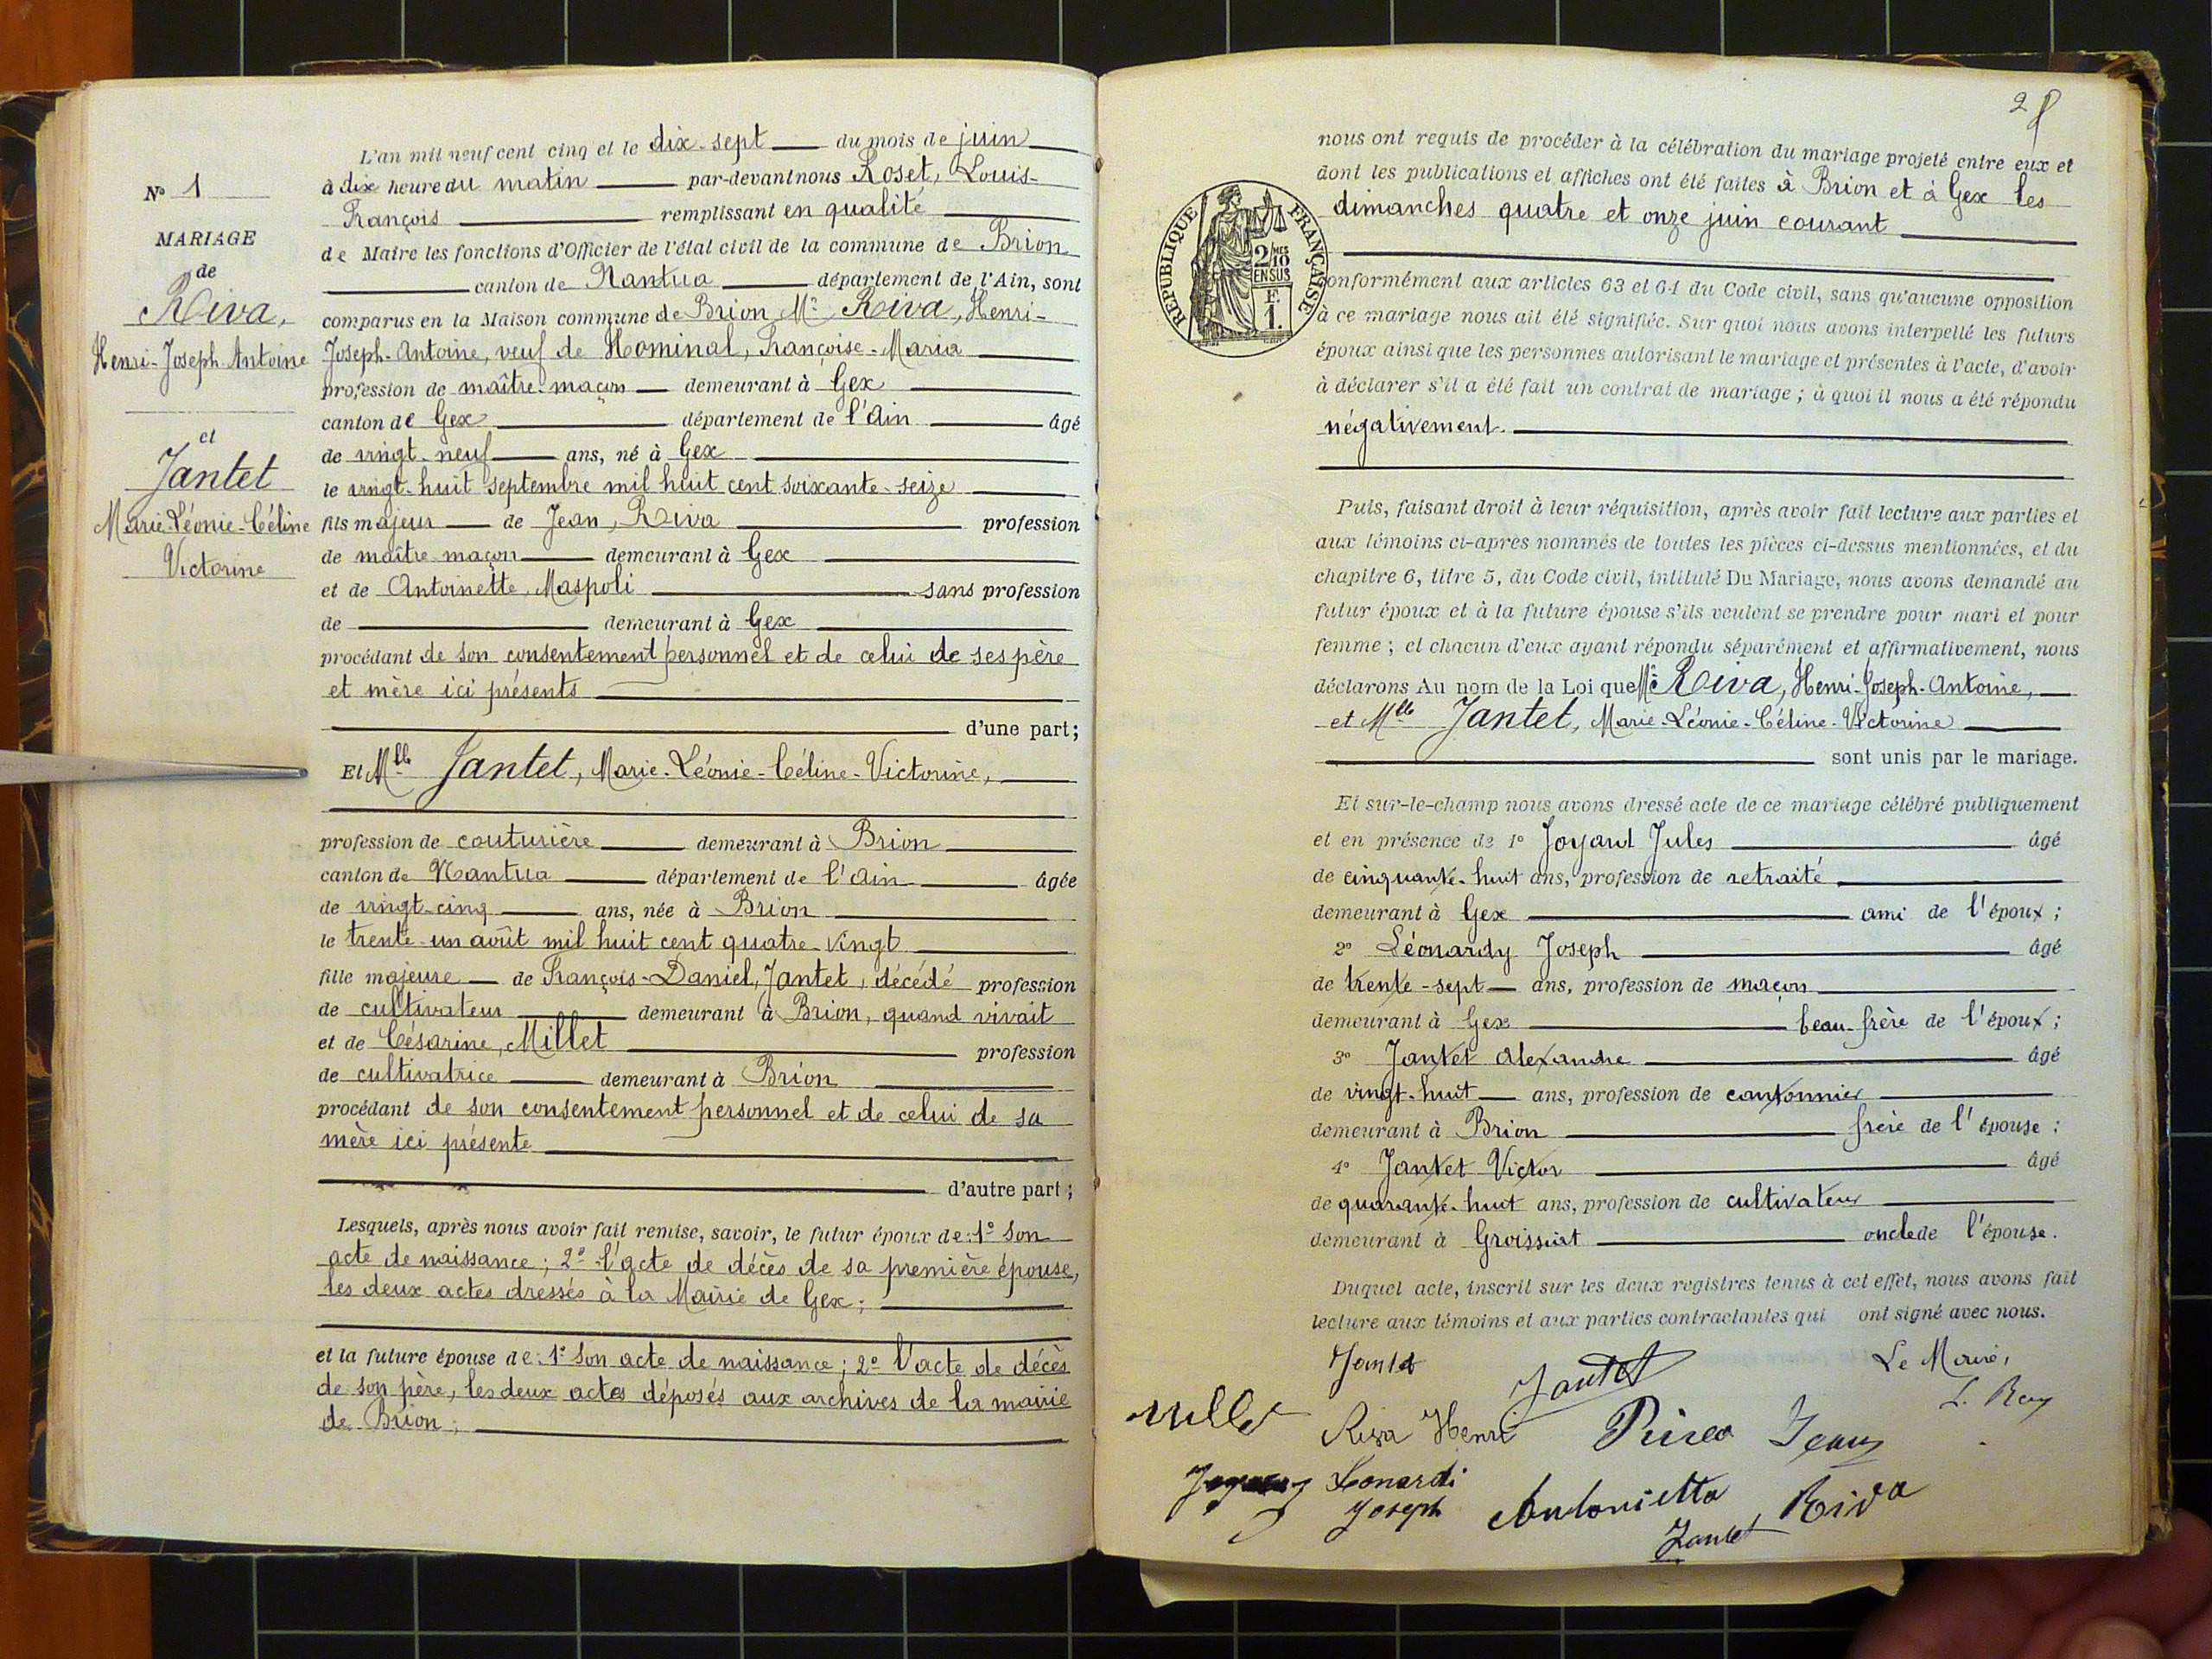 N° 1
MARIAGE
de
Riva,
Henri-Joseph-Antoine
et
Jantet
Marie-Léonie-Céline
Victorine
L'an mil neuf cent cinq et le dix-sept du mois de juin
à dix heure du matin par-devant nous Roset, Louis-
François remplissant en qualité
de Maire les fonctions d'Officier de l'état civil de la commune de Brion
canton de Nantua département de l'Ain, sont
comparus en la Maison commune de Brion Mr Riva, Henri-
Joseph-Antoine, veuf de Hominal, Françoise-Maria
profession de maître-maçon demeurant à Gex
canton de Gex département de l'Ain âgé
de vingt-neuf ans, né à Gex
le vingt-huit septembre mil huit cent soixante-seize
fils majeur de Jean, Riva profession
de maître-maçon demeurant à Gex
et de Antoinette, Maspoli sans profession
de demeurant à Gex
procédant de son consentement personnel et de celui de ses père
et mère ici présents
d'une part;
Et Mlle Jantet, Marie-Léonie-Céline-Victorine,
profession de couturière demeurant à Brion
canton de Nantua département de l'Ain âgée
de vingt-cinq ans, née à Brion
le trente-un août mil huit cent quatre-vingt
fille majeure de François-Daniel, Jantet, décédé profession
de cultivateur demeurant à Brion, quand vivait
et de Césarine, Millet profession
de cultivatrice demeurant à Brion
procédant de son consentement personnel et de celui de sa
mère ici présente
d'autre part;
Lesquels, après nous avoir fait remise, savoir, le futur époux de: 1° Son
acte de naissance; 2° l'acte de décès de sa première épouse,
les deux actes dressés à la Mairie de Gex;
et la future épouse de: 1° Son acte de naissance; 2° l'acte de décès
de son père, les deux actes déposés aux archives de la mairie
de Brion;
2
nous ont requis de procéder à la célébration du mariage projeté entre eux et
dont les publications et affiches ont été faites à Brion et à Gex les
dimanches quatre et onze juin courant
RÉPUBLIQUE FRANÇAISE
2/10
EN SUS
F.
1.
conformément aux articles 63 et 64 du Code civil, sans qu'aucune opposition
à ce mariage nous ait été signifiée. Sur quoi nous avons interpellé les futurs
époux ainsi que les personnes autorisant le mariage et présentes à l'acte, d'avoir
à déclarer s'il a été fait un contrat de mariage; à quoi il nous a été répondu
négativement.
Puis, faisant droit à leur réquisition, après avoir fait lecture aux parties et
aux témoins ci-après nommés de toutes les pièces ci-dessus mentionnées, et du
chapitre 6, titre 5, du Code civil, intitulé Du Mariage, nous avons demandé au
futur époux et à la future épouse s'ils veulent se prendre pour mari et pour
femme; et chacun d'eux ayant répondu séparément et affirmativement, nous
déclarons Au nom de la Loi que Mr Riva, Henri-Joseph-Antoine,
et Mlle Jantet, Marie-Léonie-Céline-Victorine
sont unis par le mariage.
Et sur-le-champ nous avons dressé acte de ce mariage célébré publiquement
et en présence de 1° Joyard Jules âgé
de cinquante-huit ans, profession de retraité
demeurant à Gex ami de l'époux;
2° Léonardy Joseph âgé
de trente-sept ans, profession de maçon
demeurant à Gex beau-frère de l'époux;
3° Jantet Alexandre âgé
de vingt-huit ans, profession de cantonnier
demeurant à Brion frère de l'épouse;
4° Jantet Victor âgé
de quarante-huit ans, profession de cultivateur
demeurant à Groissiat oncle de l'épouse.
Duquel acte, inscrit sur les deux registres tenus à cet effet, nous avons fait
lecture aux témoins et aux parties contractantes qui ont signé avec nous.
Jantet
Jantet
Le Maire,
Millet
Riva Henri
Riva Jean
Leonardi
Joseph
Antonietta Riva
Jantet